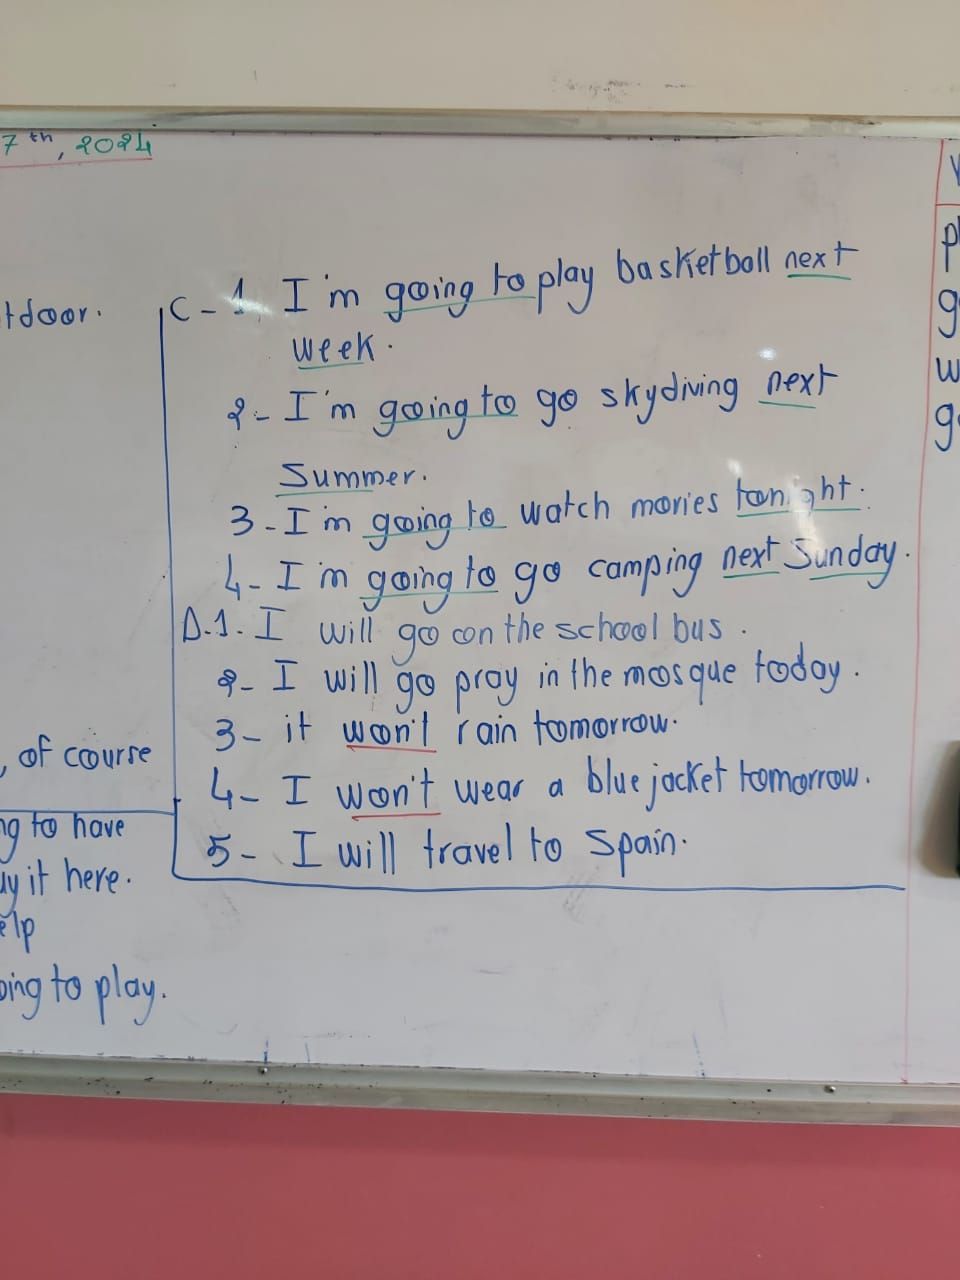 7th, 2024
tdoor.
C-1. I'm going to play basketball next
week.
2- I'm going to go skydiving next
Summer.
3-I'm going to watch movies tonight.
4- I'm going to go camping next Sunday.
D.1. I will go on the school bus.
2- I will go pray in the mosque today.
3- it won't rain tomorrow.
4- I won't wear a blue jacket tomorrow.
5- I will travel to Spain.
, of course
ng to have
uy it here.
elp
oing to play.